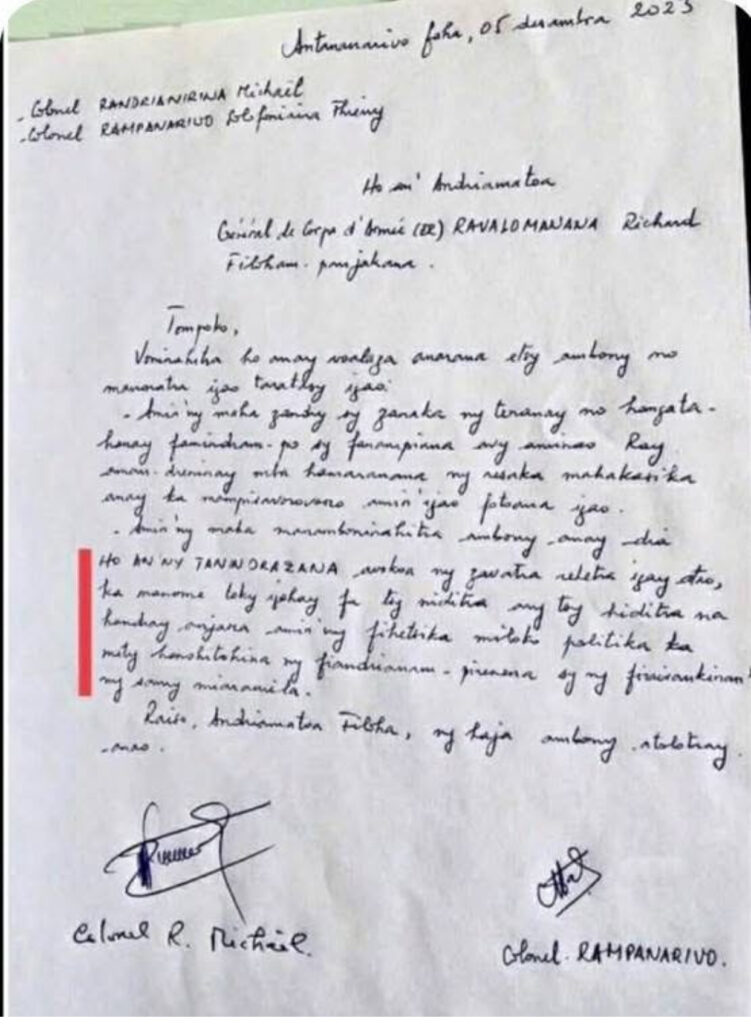 Antananarivo faha, 05 desambra 2023
- Colonel RANDRIANIRINA Michaël
- Colonel RAMPANARIVO Lolofonirina Thierry
Ho an' Andriamatoa
Général de Corps d'Armée (ER) RAVALOMANANA Richard
Filoham-panjakana.
Tompoko,
Voninahitra ho anay voalaza anarana etsy ambony no
manoratra izao taratasy izao.
- Amin'ny maha zandry sy zanaka ny tenanay no hangata-
hanay famindram-po sy fanampiana avy aminao Ray
aman-dreninay mba hamaranana ny resaka mahakasika
anay ka nampisavorovoro amin'izao fotoana izao.
- Amin'ny maha manamboninahitra ambony anay dia
HO AN'NY TANINDRAZANA avokoa ny zavatra rehetra izay atao,
ka manome toky izahay fa tsy niditra ary tsy hiditra na
handray anjara amin'ny fihetsika miloko politika ka
mety hanohitohina ny fiandrianam-pirenena sy ny firaisankinan'
ny samy miaramila.
Raiso, Andriamatoa Filoha, ny haja ambony atolotray
anao.
Colonel R. Michaël.
Colonel RAMPANARIVO.